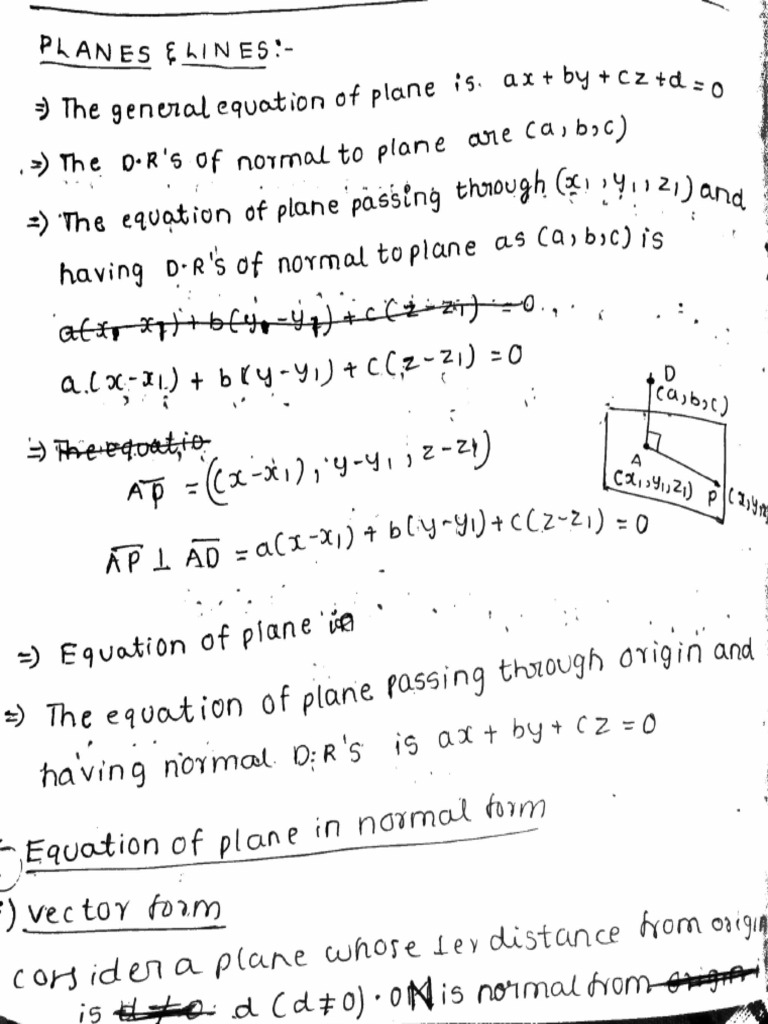 PLANES & LINES:-
⇒) The general equation of plane is. ax + by + cz + d = 0
⇒) The D.R's of normal to plane are (a, b, c)
⇒) The equation of plane passing through (x₁, y₁, z₁) and
having D.R's of normal to plane as (a, b, c) is
a(x - x₁) + b(y - y₁) + c(z - z₁) = 0
a.(x - x₁) + b(y - y₁) + c(z - z₁) = 0
D
(a, b, c)
A
(x₁, y₁, z₁) P (x, y, z)
⇒) The equatio
A̅P̅ = ((x - x₁), y - y₁, z - z₁)
A̅P̅ ⊥ A̅D̅ = a(x - x₁) + b(y - y₁) + c(z - z₁) = 0
⇒) Equation of plane
⇒) The equation of plane passing through origin and
having normal D.R's is ax + by + cz = 0
Equation of plane in normal form
) vector form
consider a plane whose ⊥er distance from origin
is d ≠ 0. d (d ≠ 0). ON is normal from origin